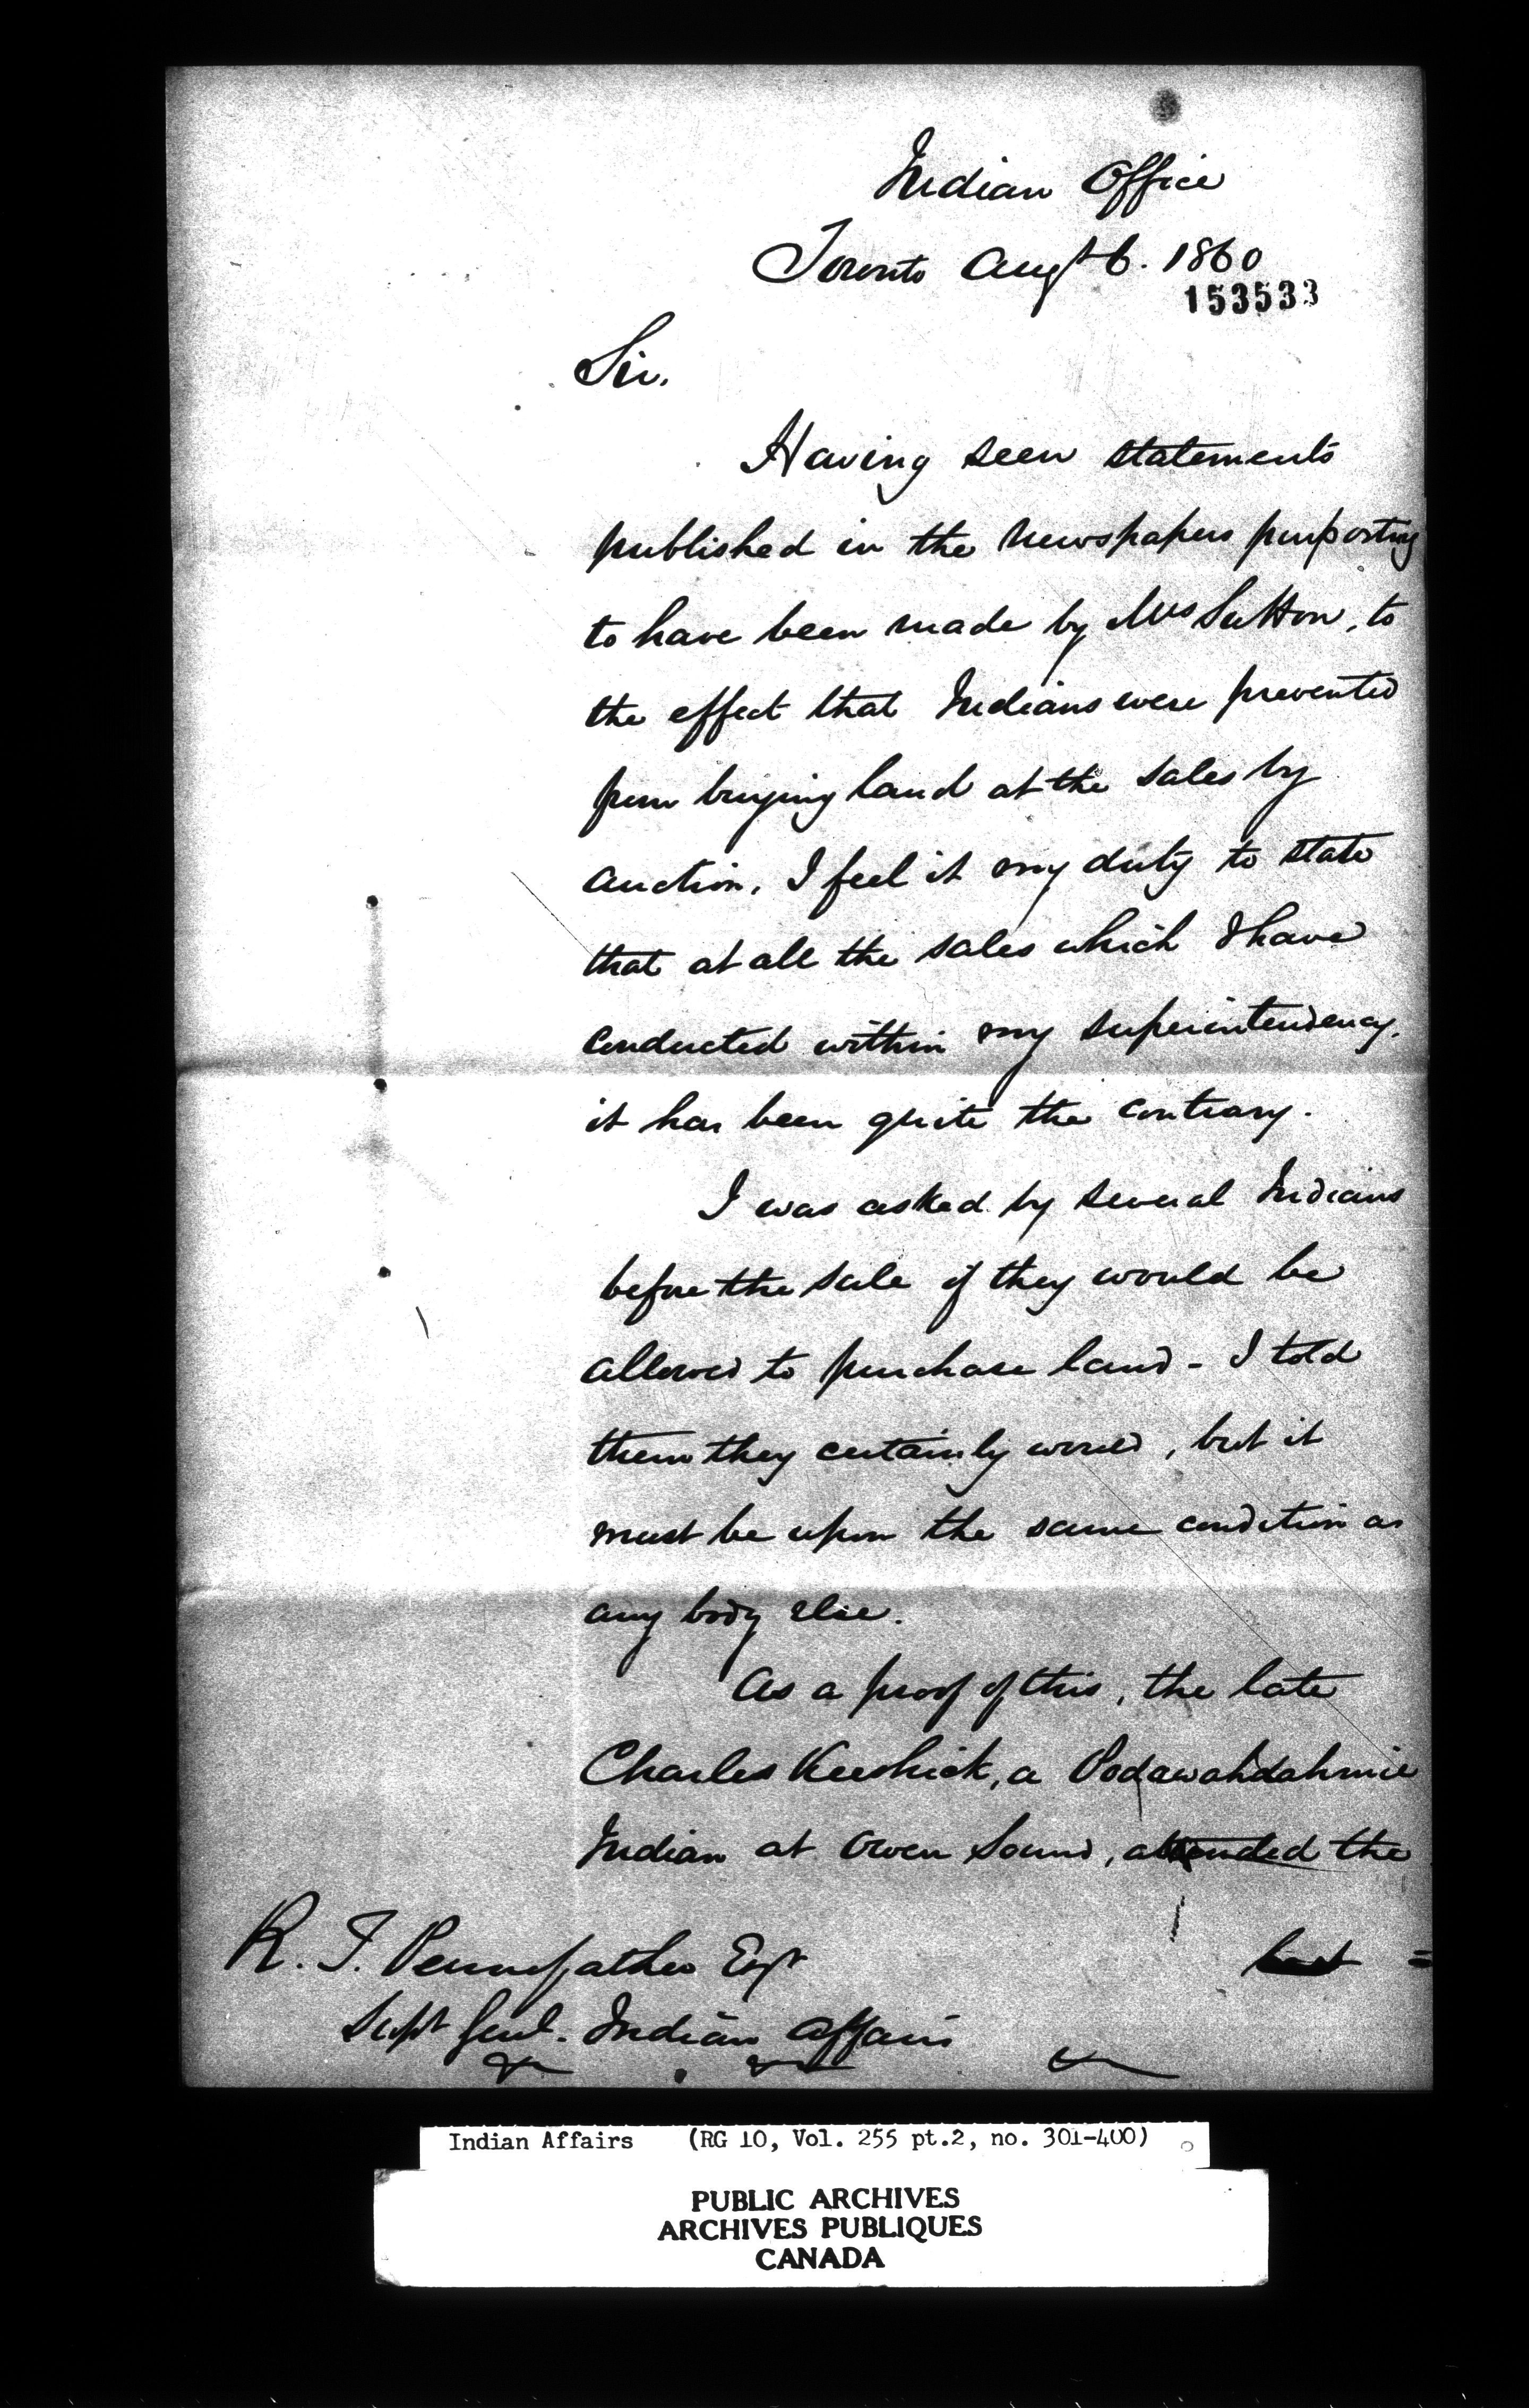 Indian Office
Toronto Augt 6. 1860
153533
Sir.
Having seen statements
published in the Newspapers purporting
to have been made by Mrs Sutton, to
the effect that Indians were prevented
from buying land at the sales by
auction, I feel it my duty to state
that at all the sales which I have
conducted within my superintendency,
it has been quite the contrary.
I was asked by several Indians
before the sale if they would be
allowed to purchase land - I told
them they certainly would, but it
must be upon the same condition as
any body else.
As a proof of this, the late
Charles Keeshick, a Podawahdahmie
Indian at Owen Sound, attended the
R. T. Pennefather Esqr
Supt Genl. Indian Affairs
Indian Affairs (RG 10, Vol. 255 pt.2, no. 301-400)
PUBLIC ARCHIVES
ARCHIVES PUBLIQUES
CANADA